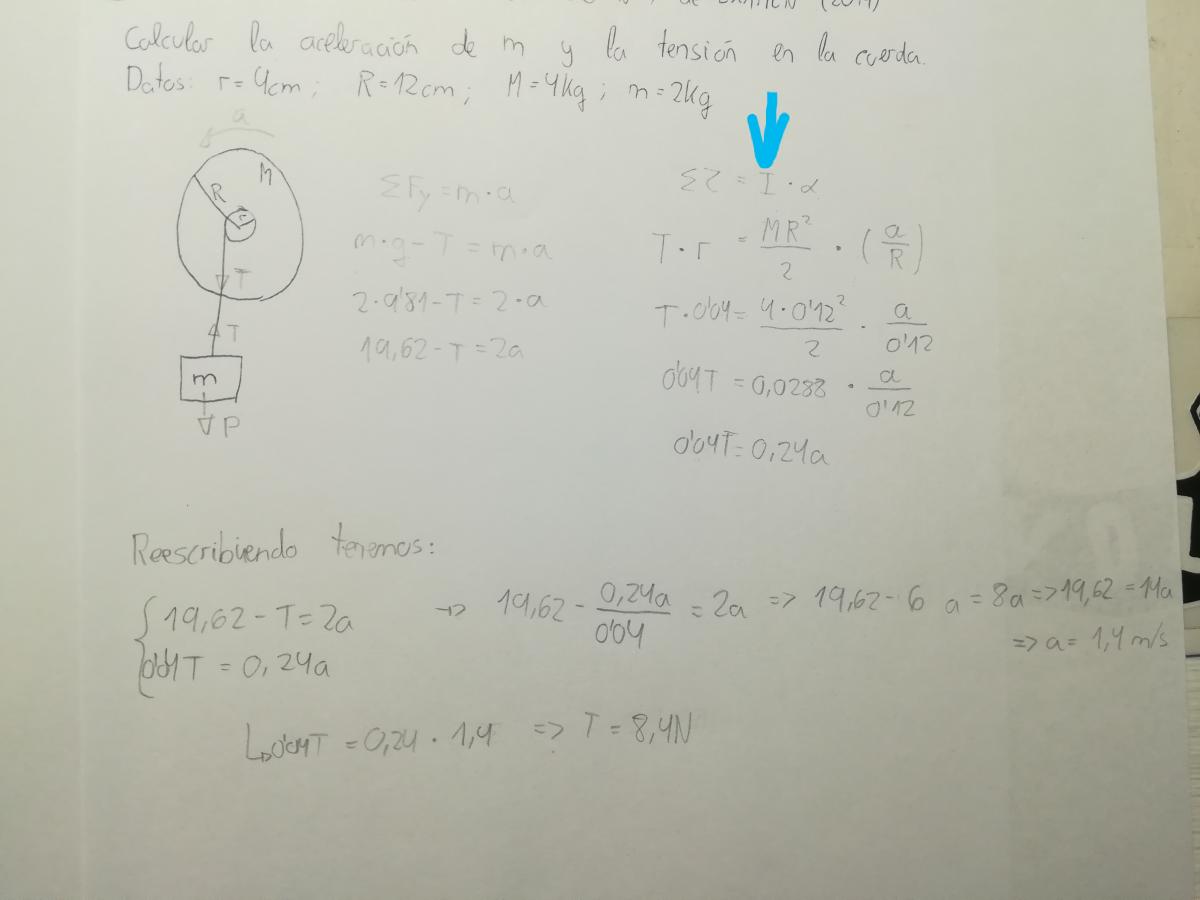 de EXAMEN (2014)
Calcular la aceleración de m y la tensión en la cuerda.
Datos: r=4cm; R=12cm; M=4Kg; m=2Kg
a
R M
r
T
T
m
P
ΣFy=m·a
m·g-T=m·a
2·9'81-T=2·a
19,62-T=2a
Στ=I·α
T·r=MR²/2·(a/R)
T·0'04=4·0'12²/2·a/0'12
0'04T=0,0288·a/0'12
0'04T=0,24a
Reescribiendo tenemos:
{19,62-T=2a → 19,62-0,24a/0'04=2a => 19,62-6 a=8a=>19,62=14a
0'04T=0,24a => a=1,4 m/s
↳0'04T=0,24·1,4 => T=8,4N